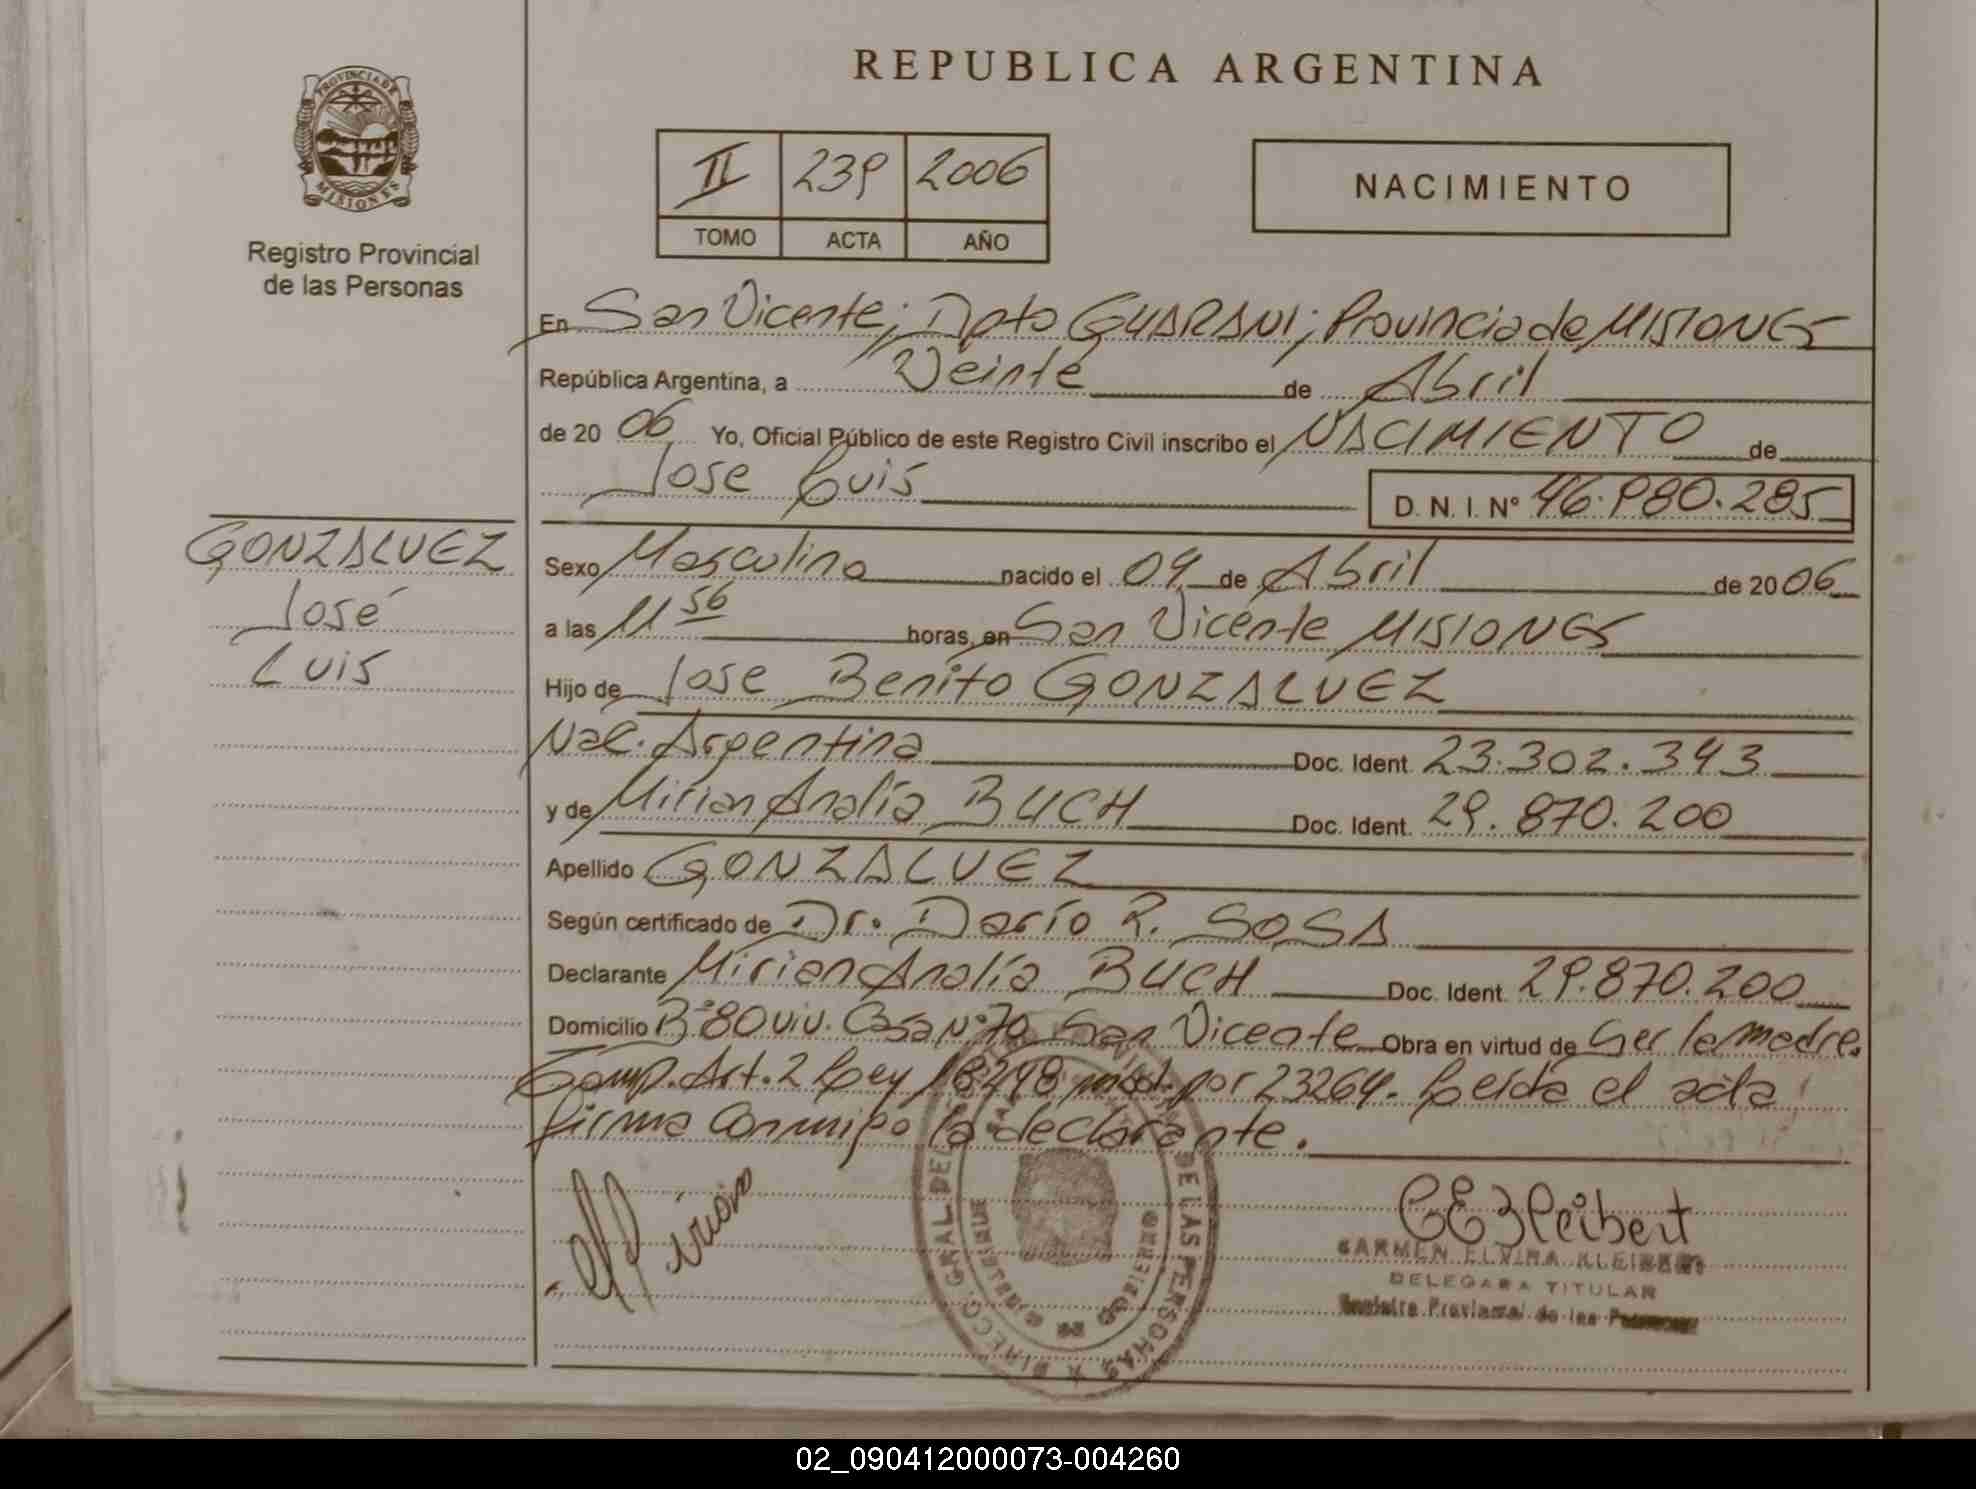 REPUBLICA ARGENTINA
PROVINCIA DE
MISIONES
Registro Provincial
de las Personas
II 239 2006
TOMO ACTA AÑO
NACIMIENTO
En San Vicente; Dpto GUARANI; Provincia de MISIONES
República Argentina, a Veinte de Abril
de 20 06 Yo, Oficial Público de este Registro Civil inscribo el NACIMIENTO de
Jose Luis D. N. I. Nº 46.980.285
GONZALVEZ
José
Luis
Sexo Masculino nacido el 04 de Abril de 20 06
a las 11 56 horas, en San Vicente MISIONES
Hijo de Jose Benito GONZALVEZ
Nac. Argentina Doc. Ident. 23.302.343
y de Mirian Analía BUCH Doc. Ident. 29.870.200
Apellido GONZALVEZ
Según certificado de Dr. Darío R. SOSA
Declarante Mirian Analía BUCH Doc. Ident. 29.870.200
Domicilio Bº 80 viv. Casa Nº 70 San Vicente Obra en virtud de Ser la madre.
Comp. Art. 2 Ley 18248 mod. por 23264. Leída el acta
firma conmigo la declarante.
Mirian
CEKleibert
CARMEN ELVIRA KLEIBERT
DELEGADA TITULAR
Registro Provincial de las Personas
DIRECC. GRAL DEL DE LAS PERSONAS
02_090412000073-004260